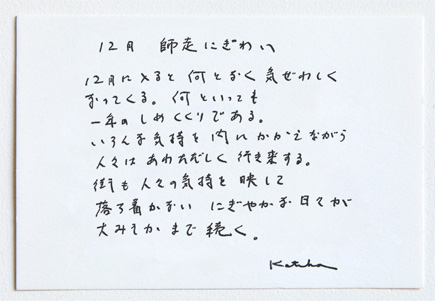 12月 師走にぎわい
12月に入ると何となく気ぜわしく
なってくる。何といっても
一年のしめくくりである。
いろんな気持を内にかかえながら
人々はあわただしく行き来する。
街も人々の気持を映して
落ち着かない にぎやかな日々が
大みそかまで続く。